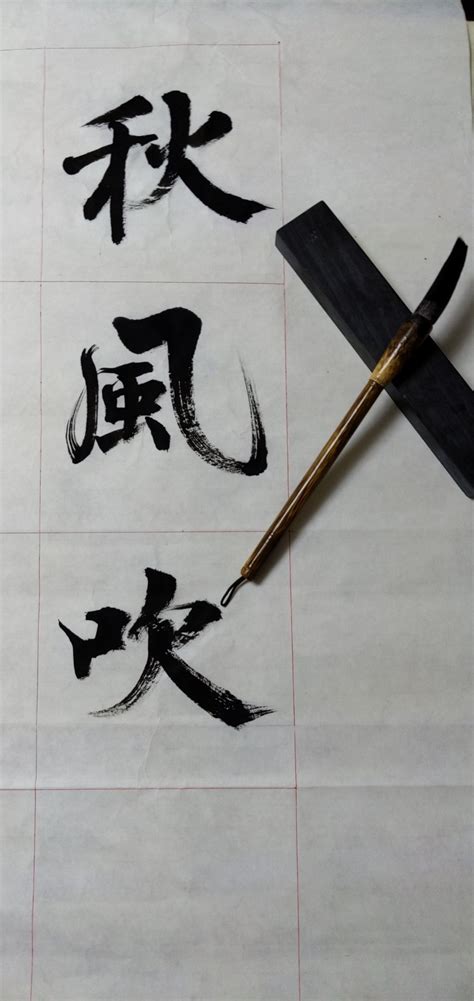 秋風吹